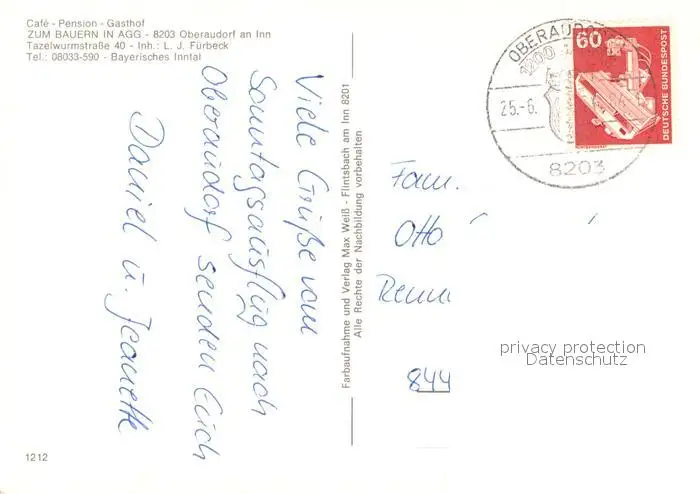 Café - Pension - Gasthof
ZUM BAUERN IN AGG - 8203 Oberaudorf an Inn
Tazelwurmstraße 40 - Inh.: L. J. Fürbeck
Tel.: 08033-590 - Bayerisches Inntal
Viele Grüße vom
Sonntagsausflug nach
Oberaudorf senden Euch
Daniel u. Jeanette
Farbaufnahme und Verlag Max Weiß - Flintsbach am Inn 8201
Alle Rechte der Nachbildung vorbehalten
OBERAUDO
1200
25.-6.
8203
60
DEUTSCHE BUNDESPOST
Fam.
Otto
Renn
844
privacy protection
Datenschutz
1212